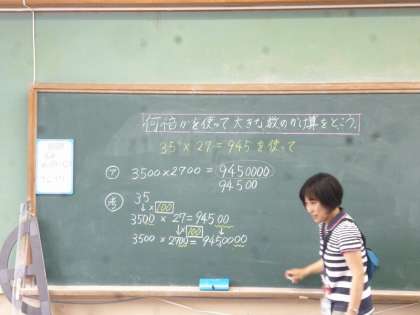 何倍かを使って大きな数のかけ算をとこう。
35×27=945を使って
ア 3500×2700=9450000
94500
35
↓×100
3500 × 27=94500
↓×100 ↓
3500×2700=9450000